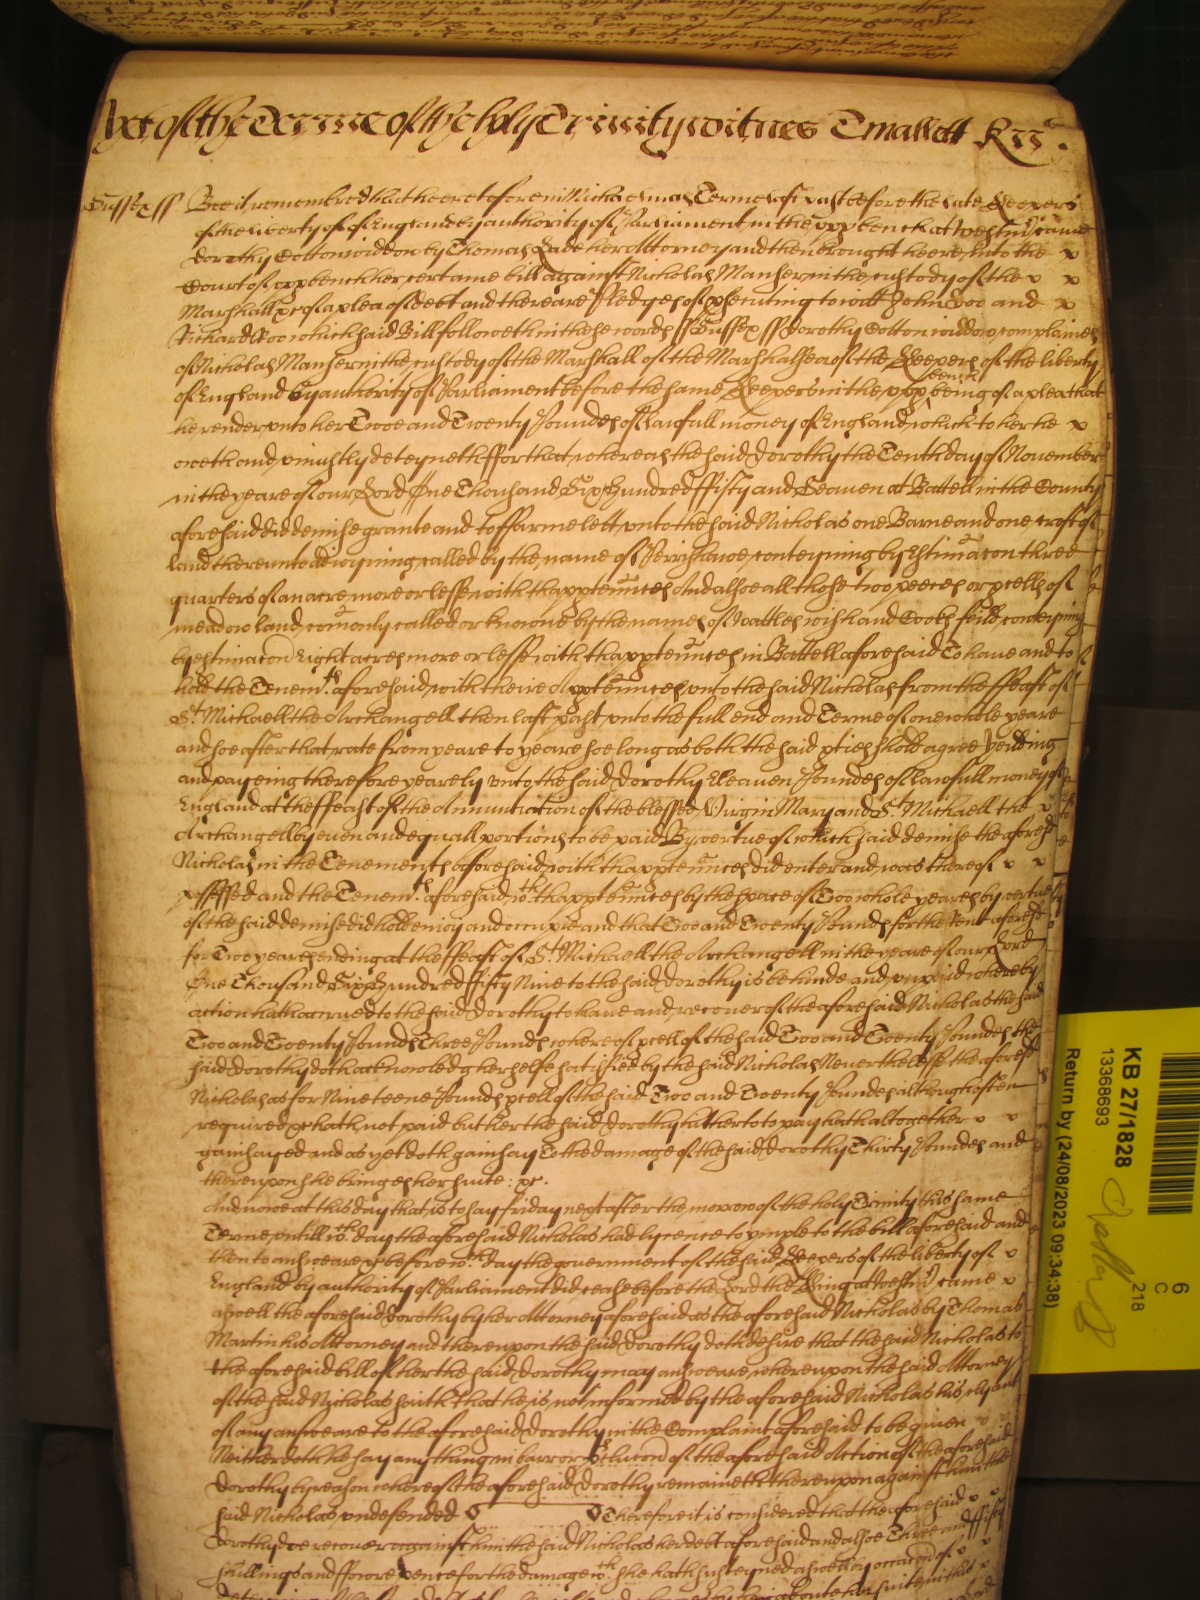 Yet of the Terme of the holy Trinity witnes T Mallett Kt
Sussex ss Bee it remembred that heretofore in Michaelmas Terme last past before the late Keepers
of the liberty of England by authority of Parliament in the upp bench at Westm came
Dorothy Cotton widdow by Thomas Lade her Attorney and then brought heere into the
Court of upp bench her certaine bill against Nicholas Manser in the custody of the
Marshall &c of a plea of debt and there are Pledges of psecuting to witt John Doo and
Richard Roo which said Bill followeth in these words ss Sussex ss Dorothy Cotton widdow complaines
of Nicholas Manser in the custody of the Marshall of the Marshalsea of the Keepers of the liberty
of England by authority of Parliament before the same Keepers in the upp bench being of a plea that
he render unto her Twoe and Twenty Poundes of lawfull money of England which to her he
oweth and uniustly deteyneth ffor that whereas the said Dorothy the Tenth day of November
in the yeare of our Lord One Thousand Six hundred ffifty and Seaven at Battell in the County
aforesaid did demise grante and to ffarme lett unto the said Nicholas one Barne and one croft of
land thereunto adioyning called by the name of conteyning by Estimacon three
quarters of an acre more or lesse with thapptennces And alsoe all those two peeces or pcells of
meadow land comonly called or knowne by the names of Wattleswish and Cooks feild conteyning
by estimacon Eight acres more or lesse with thapptennces in Battell aforesaid To have and to
hold the Tenemts aforesaid with theire Apptennces unto the said Nicholas from the ffeast of
St Michaell the Archangell then last past unto the full end and Terme of one whole yeare
and soe after that rate from yeare to yeare soe long as both the said pties should agree Yeilding
and payeing therefore yearely unto the said Dorothy Eleaven Poundes of lawfull money of
England at the ffeast of the Annunciation of the blessed Virgin Mary and St Michaell the
Archangell by even and equall portions to be paid By vertue of which said demise the aforesd
Nicholas in the Tenements aforesaid with thapptennces did enter and was thereof
possessed and the Tenemts aforesaid wth thapptennces by the space of Two whole yeares by vertue
of the said demise did hold enioy and occupie and that Two and Twenty Pounds for the Rent aforesd
for Two yeares ending at the ffeast of St Michaell the Archangell in the yeare of our Lord
One Thousand Six hundred ffifty Nine to the said Dorothy is behinde and unpaid whereby
action hath accrued to the said Dorothy to have and recover of the aforesaid Nicholas the said
Two and Twenty Pounds Three Pounds whereof pcell of the said Two and Twenty Poundes the
said Dorothy doth acknowledg herselfe satisfied by the said Nicholas Neverthelesse the aforesd
Nicholas as for Nineteene Pounds pcell of the said Two and Twenty Poundes although often
required &c hath not paid but her the said Dorothy hitherto to pay hath altogether
gainsayed and as yet doth gainsay To the damage of the said Dorothy Thirty Poundes and
thereupon she bringes her suite &c.
And now at this day that is to say friday next after the morrow of the holy Trinity this same
Terme untill wch day the aforesaid Nicholas had lycence to imple to the bill aforesaid and
then to answeare &c before wch day the government of the said Keepers of the liberty of
England by authority of Parliament did cease before the Lord the King at Westm came
aswell the aforesaid Dorothy by her Attorney aforesaid as the aforesaid Nicholas by Thomas
Martin his Attorney and thereupon the said Dorothy doth desire that the said Nicholas to
the aforesaid bill of her the said Dorothy may answeare whereupon the said Attorney
of the said Nicholas saith that he is not informed by the aforesaid Nicholas his clyant
of any answeare to the aforesaid Dorothy in the Complaint aforesaid to be given
Neither doth he say any thing in barr or pclucon of the aforesaid Action of the aforesaid
Dorothy by reason whereof the aforesaid Dorothy remaineth thereupon against him the
said Nicholas undefended Therefore it is considered that the aforesaid
Dorothy doe recover against him the said Nicholas her debt aforesaid and alsoe Three and ffifty
shillings and ffowre pence for the damage wch she hath susteyned aswell by occacon of
KB 27/1828
13368693
Return by (24/08/2023 09:34:38)
6
C
218